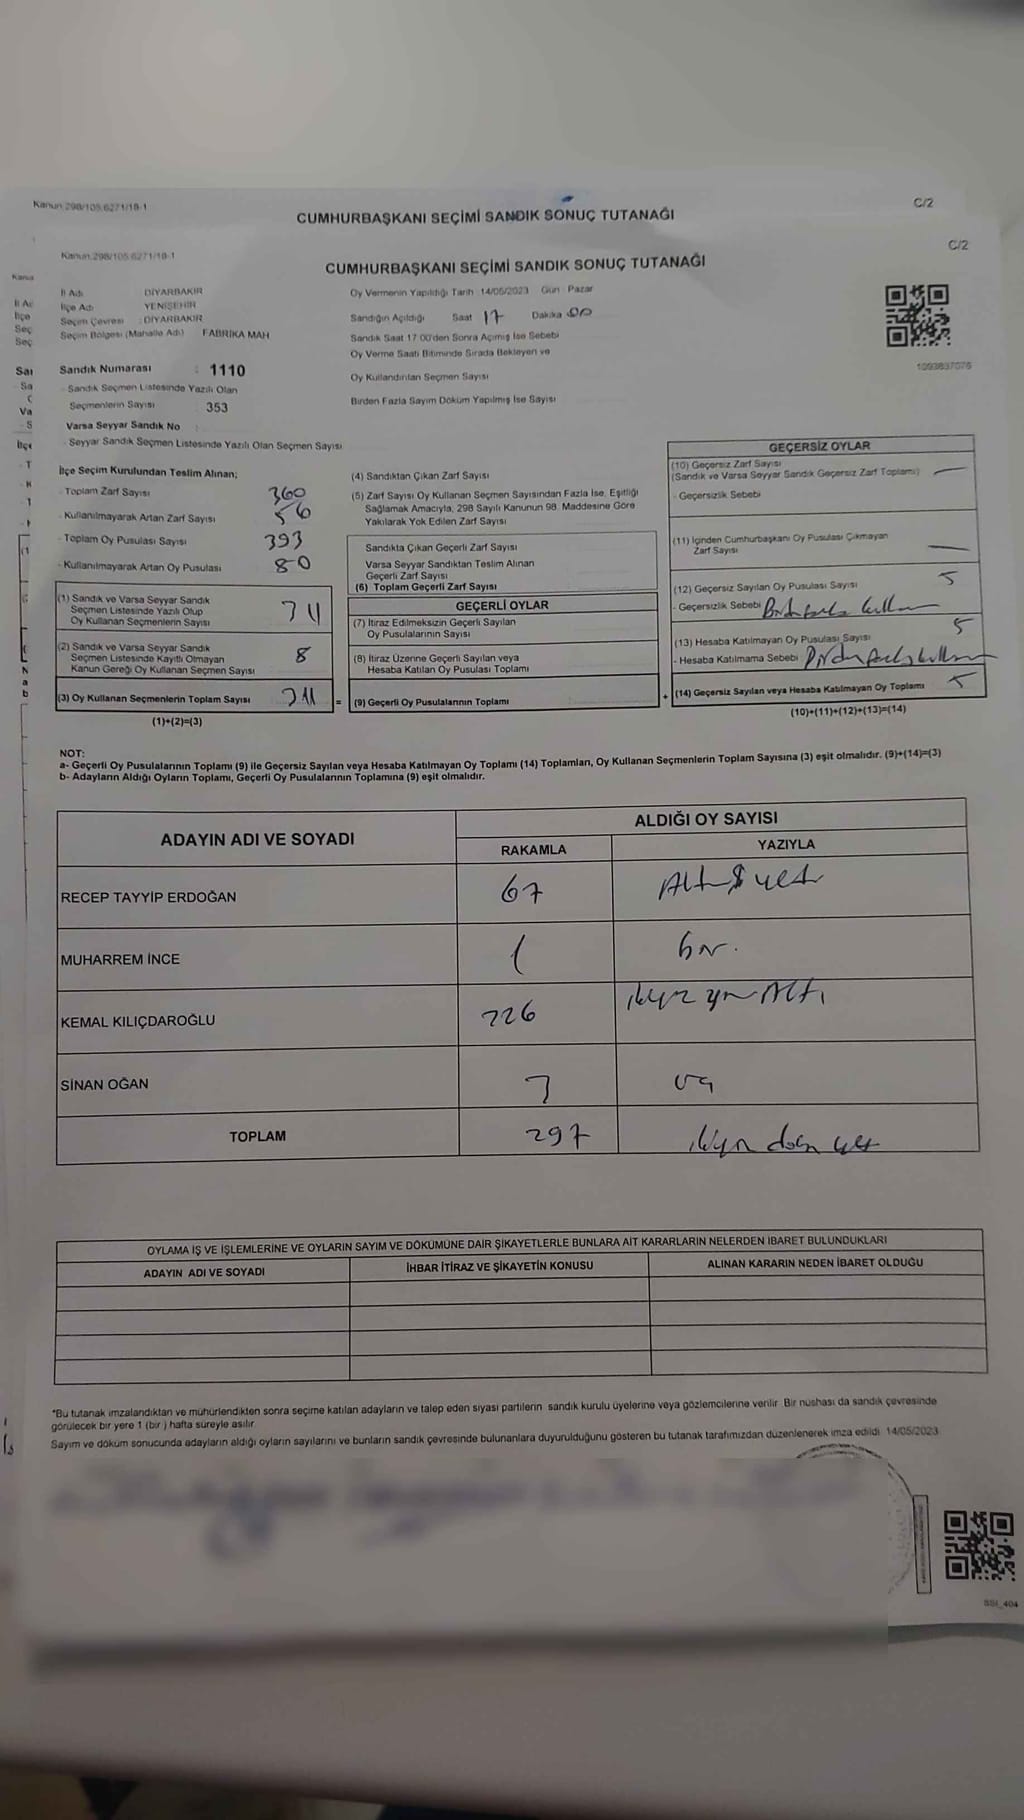 Kanun:298/105,6271/18-1
C/2
CUMHURBAŞKANI SEÇİMİ SANDIK SONUÇ TUTANAĞI
Kanun:298/105,6271/18-1
C/2
CUMHURBAŞKANI SEÇİMİ SANDIK SONUÇ TUTANAĞI
İl Adı : DİYARBAKIR
İlçe Adı : YENİŞEHİR
Seçim Çevresi : DİYARBAKIR
Seçim Bölgesi (Mahalle Adı) FABRİKA MAH
Sandık Numarası : 1110
- Sandık Seçmen Listesinde Yazılı Olan
Seçmenlerin Sayısı : 353
Varsa Seyyar Sandık No :
- Seyyar Sandık Seçmen Listesinde Yazılı Olan Seçmen Sayısı
Oy Vermenin Yapıldığı Tarih :14/05/2023 Gün : Pazar
Sandığın Açıldığı Saat 17 Dakika 00
Sandık Saat 17.00'den Sonra Açımış İse Sebebi
Oy Verme Saati Bitiminde Sırada Bekleyen ve
Oy Kullandırılan Seçmen Sayısı
Birden Fazla Sayım Döküm Yapılmış İse Sayısı
1093837076
İlçe Seçim Kurulundan Teslim Alınan;
- Toplam Zarf Sayısı 360
- Kullanılmayarak Artan Zarf Sayısı 56
- Toplam Oy Pusulası Sayısı 393
- Kullanılmayarak Artan Oy Pusulası 80
(1) Sandık ve Varsa Seyyar Sandık
Seçmen Listesinde Yazılı Olup
Oy Kullanan Seçmenlerin Sayısı
(2) Sandık ve Varsa Seyyar Sandık
Seçmen Listesinde Kayıtlı Olmayan
Kanun Gereği Oy Kullanan Seçmen Sayısı 8
(3) Oy Kullanan Seçmenlerin Toplam Sayısı =
(1)+(2)=(3)
(4) Sandıktan Çıkan Zarf Sayısı
(5) Zarf Sayısı Oy Kullanan Seçmen Sayısından Fazla İse, Eşitliği
Sağlamak Amacıyla, 298 Sayılı Kanunun 98. Maddesine Göre
Yakılarak Yok Edilen Zarf Sayısı
Sandıkta Çıkan Geçerli Zarf Sayısı
Varsa Seyyar Sandıktan Teslim Alınan
Geçerli Zarf Sayısı
(6) Toplam Geçerli Zarf Sayısı
GEÇERLİ OYLAR
(7) İtiraz Edilmeksizin Geçerli Sayılan
Oy Pusulalarının Sayısı
(8) İtiraz Üzerine Geçerli Sayılan veya
Hesaba Katılan Oy Pusulası Toplamı
(9) Geçerli Oy Pusulalarının Toplamı +
GEÇERSİZ OYLAR
(10) Geçersiz Zarf Sayısı
(Sandık ve Varsa Seyyar Sandık Geçersiz Zarf Toplamı) —
- Geçersizlik Sebebi
(11) İçinden Cumhurbaşkanı Oy Pusulası Çıkmayan
Zarf Sayısı —
(12) Geçersiz Sayılan Oy Pusulası Sayısı 5
- Geçersizlik Sebebi
(13) Hesaba Katılmayan Oy Pusulası Sayısı 5
- Hesaba Katılmama Sebebi
(14) Geçersiz Sayılan veya Hesaba Katılmayan Oy Toplamı 5
(10)+(11)+(12)+(13)=(14)
NOT:
a- Geçerli Oy Pusulalarının Toplamı (9) ile Geçersiz Sayılan veya Hesaba Katılmayan Oy Toplamı (14) Toplamları, Oy Kullanan Seçmenlerin Toplam Sayısına (3) eşit olmalıdır. (9)+(14)=(3)
b- Adayların Aldığı Oyların Toplamı, Geçerli Oy Pusulalarının Toplamına (9) eşit olmalıdır.
ADAYIN ADI VE SOYADI
ALDIĞI OY SAYISI
RAKAMLA YAZIYLA
RECEP TAYYİP ERDOĞAN 67 Altmış yedi
MUHARREM İNCE 1 bir.
KEMAL KILIÇDAROĞLU 226 ikiyüz yirmi Altı
SİNAN OĞAN 3 üç
TOPLAM 297
OYLAMA İŞ VE İŞLEMLERİNE VE OYLARIN SAYIM VE DÖKÜMÜNE DAİR ŞİKAYETLERLE BUNLARA AİT KARARLARIN NELERDEN İBARET BULUNDUKLARI
ADAYIN ADI VE SOYADI İHBAR İTİRAZ VE ŞİKAYETİN KONUSU ALINAN KARARIN NEDEN İBARET OLDUĞU
*Bu tutanak imzalandıktan ve mühürlendikten sonra seçime katılan adayların ve talep eden siyasi partilerin sandık kurulu üyelerine veya gözlemcilerine verilir. Bir nüshası da sandık çevresinde
görülecek bir yere 1 (bir ) hafta süreyle asılır.
Sayım ve döküm sonucunda adayların aldığı oyların sayılarını ve bunların sandık çevresinde bulunanlara duyurulduğunu gösteren bu tutanak tarafımızdan düzenlenerek imza edildi. 14/05/2023
SSI_404